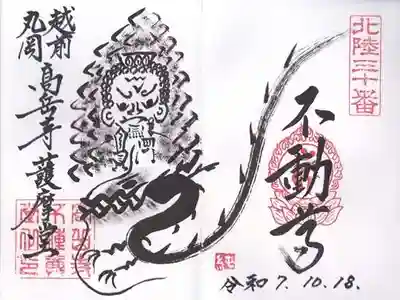 北陸三十番
不動尊
令和7.10.18.
越前
丸岡
高岳寺
護摩堂